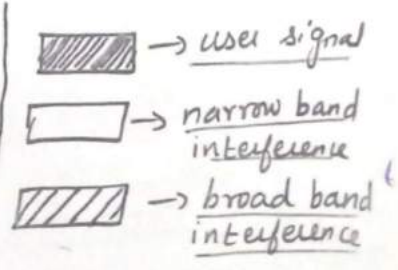 → user signal
→ narrow band
interference
→ broad band
interference